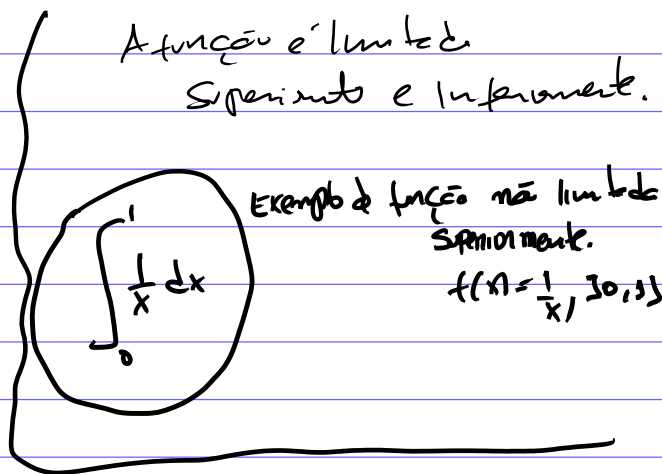 A função é limitada
superiormente e inferiormente.
Exemplo de função não limitada
superiormente.
f(x) = 1/x, ]0,1]
∫₀¹ 1/x dx